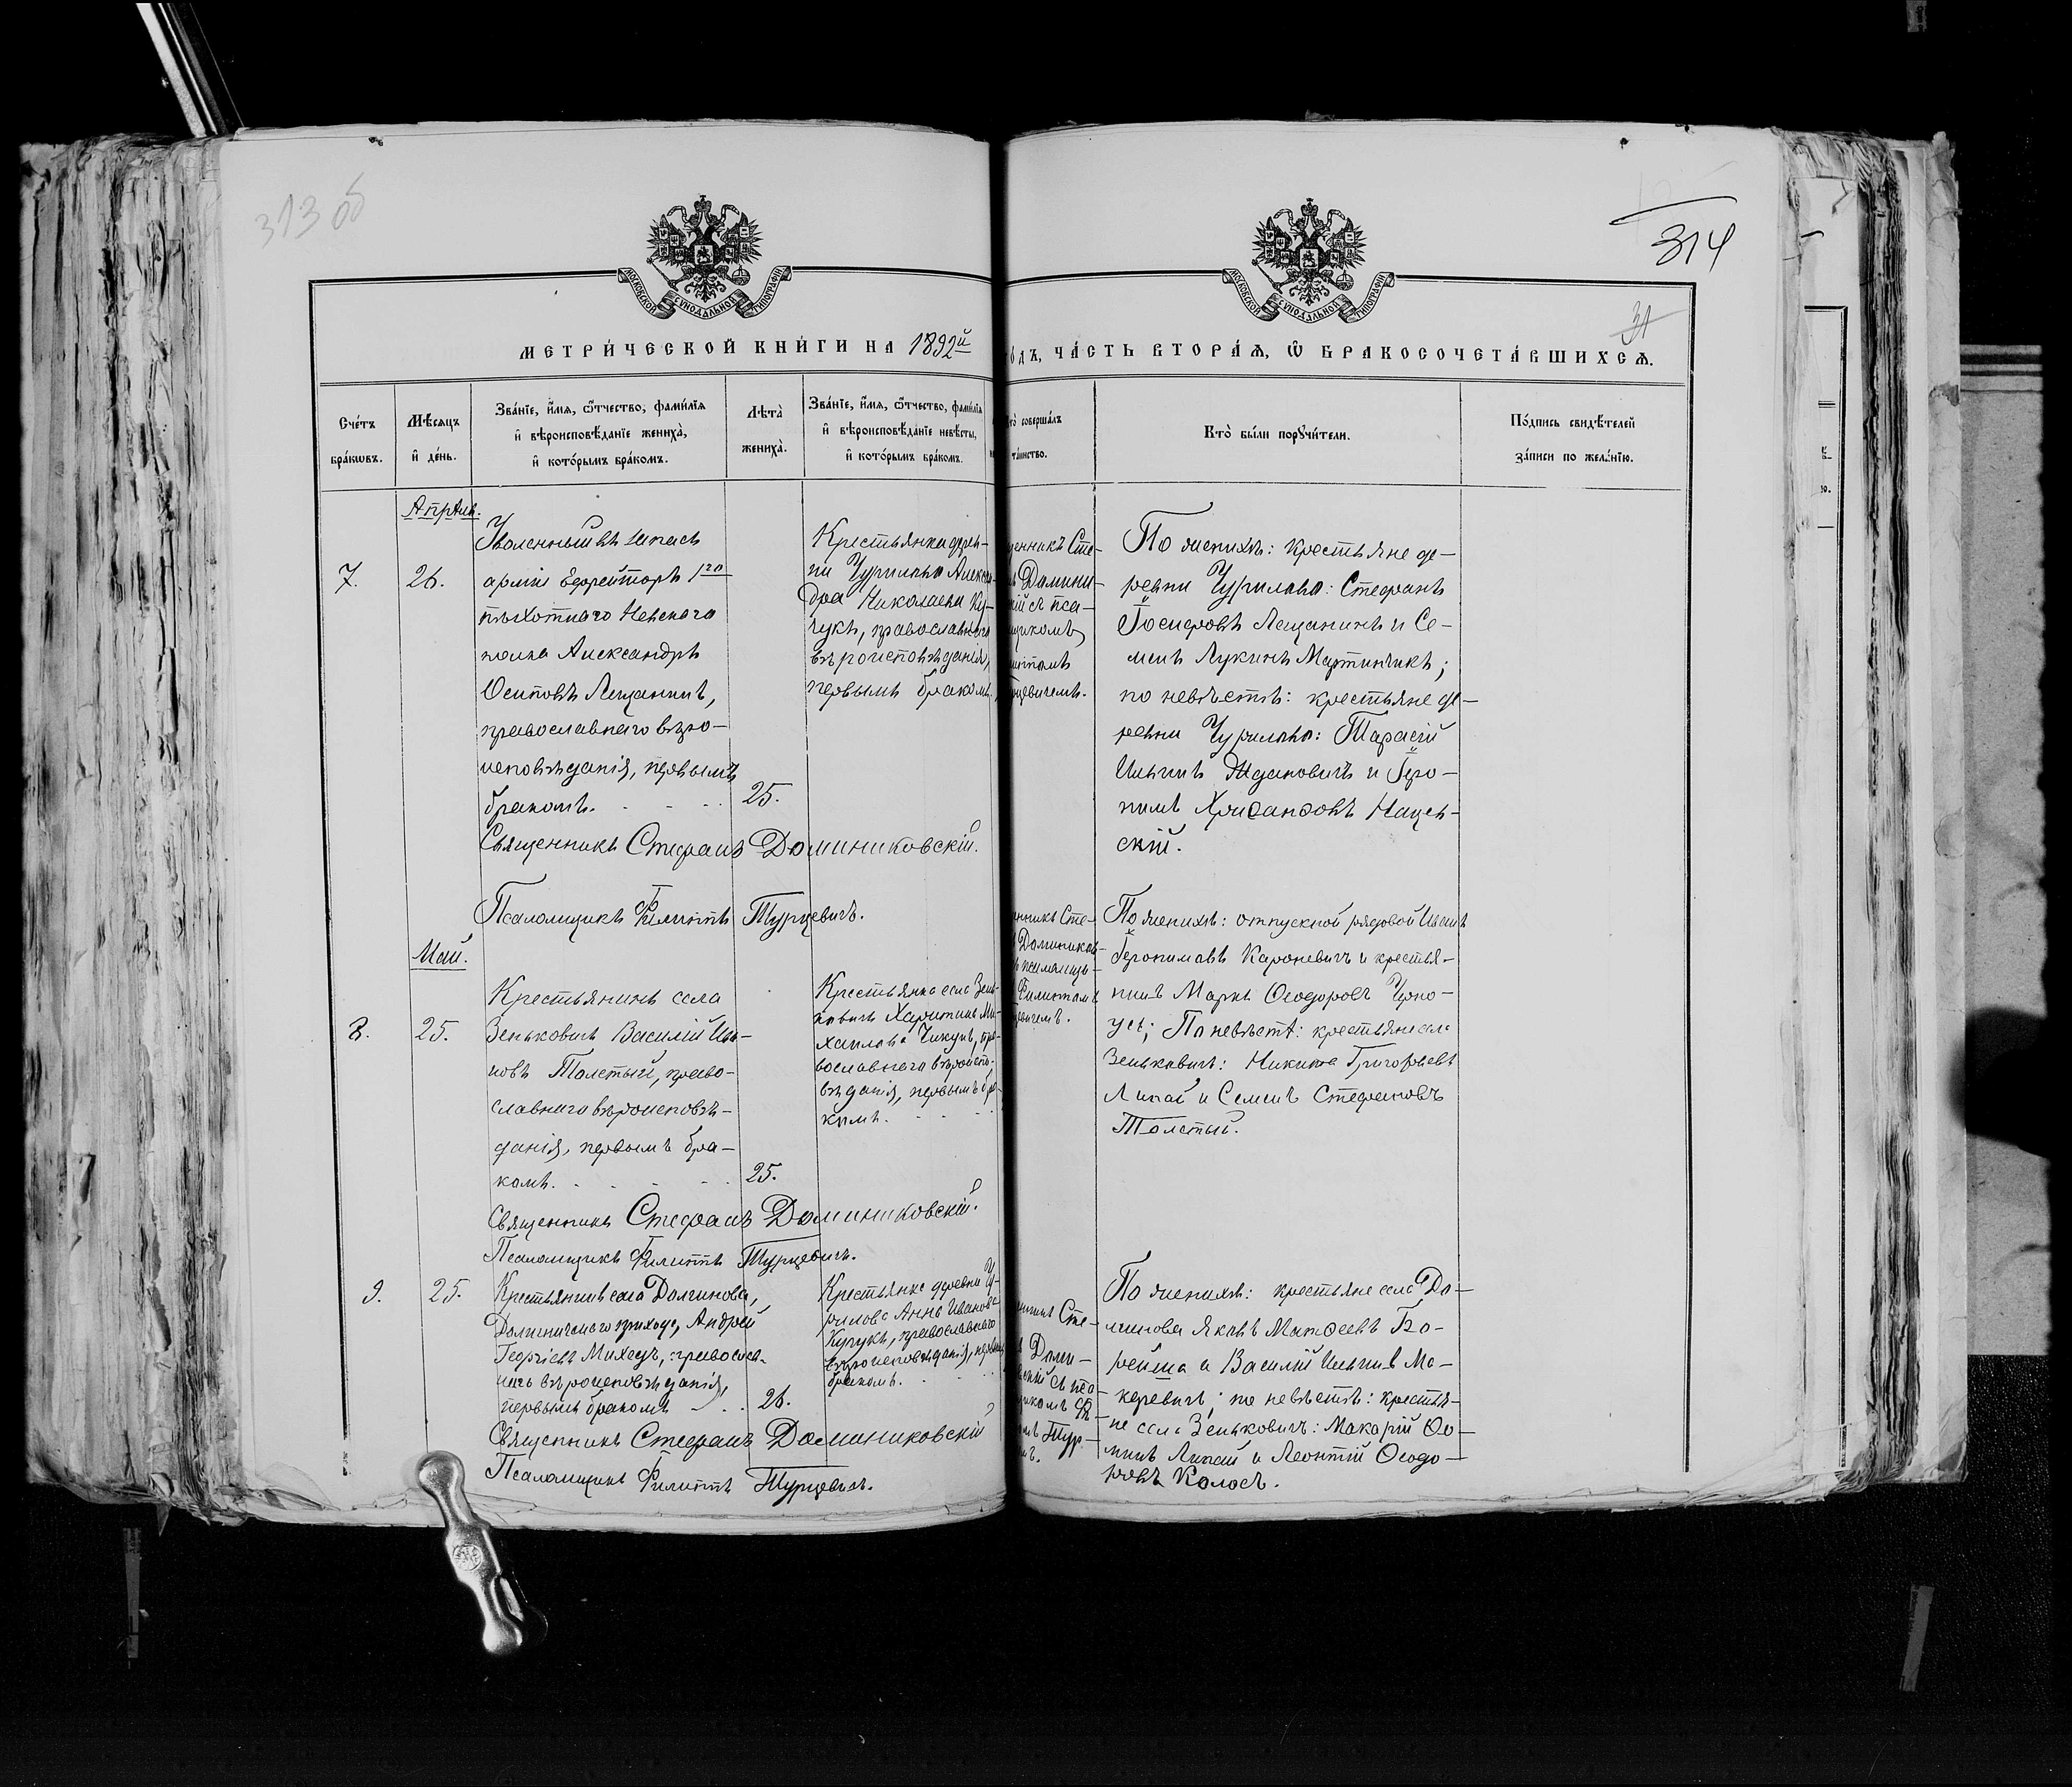 313 об
314
31
МОСКОВСКОЙ СѴНОДАЛЬНОЙ ТИПОГРАФІИ
МОСКОВСКОЙ СѴНОДАЛЬНОЙ ТИПОГРАФІИ
МЕТРИ́ЧЕСКОЙ КНИ́ГИ НА 1892й
о́дъ, ЧА́СТЬ ВТОРА́Ѧ, Ѽ БРАКОСОЧЕТА́ВШИХСѦ.
Сче́тъ
бра́кѡвъ.
Мѣ́сяцъ
и҆ де́нь.
Зва́нїе, и҆́мѧ, ѻ҆́тчество, фами́лїѧ
и҆ вѣроисповѣ́данїе жениха̀,
и҆ кото́рымъ бра́комъ.
Лѣта̀
жениха̀.
Зва́нїе, и҆́мѧ, ѻ҆́тчество, фами́лїѧ
и҆ вѣроисповѣ́данїе невѣ́сты,
и҆ кото́рымъ бра́комъ.
то̀ соверша́лъ
та́инство.
Кто̀ бы́ли порꙋчи́тели.
По́дпись свидѣ́телей
за́писи по жела́нїю.
Апрѣль.
7.
26.
Уволенный въ запасъ
арміи Ефрейторъ 1го
пѣхотнаго Невскаго
полка Александръ
Осиповъ Лещанинъ,
православнаго вѣро-
исповѣданія, первымъ
бракомъ.
25.
Крестьянка дерев-
ни Чурилово Алексан-
дра Николаева Ку-
чукъ, православнаго
вѣроисповѣданія,
первымъ бракомъ
щенникъ Сте-
Домини-
кій съ пса-
щикомъ
липпомъ
рцевичемъ.
По женихѣ: крестьяне де-
ревни Чурилово: Стефанъ
Іосифовъ Лещанинъ и Се-
менъ Лукинъ Мартинчикъ;
по невѣстѣ: крестьяне де-
ревни Чурилово: Тарасій
Ильинъ Ждановичъ и Іеро-
нимъ Хрисанѳовъ Нацев-
скій.
Священникъ Стефанъ Доминиковскій.
Псаломщикъ Филиппъ Турцевичъ.
Май.
8.
25.
Крестьянинъ села
Зеньковичъ Василій Ива-
новъ Толстый, право-
славнаго вѣроисповѣ-
данія, первымъ бра-
комъ.
25.
Крестьянка села Зень-
ковичъ Харитина Ми-
хаилова Чикунъ, пра-
вославнаго вѣроиспо-
вѣданія, первымъ бра-
комъ.
нникъ Сте-
Домиников-
псаломщи-
Филиппомъ
цевичемъ.
По женихѣ: отпускной рядовой Иванъ
Іеронимовъ Кароневичъ и крестья-
нинъ Маркъ Ѳеодоровъ
По невѣстѣ: крестьяне села
Зеньковичъ: Никита Григорьевъ
Липай и Семенъ Стефановъ
Толстый.
Священникъ Стефанъ Доминиковскій.
Псаломщикъ Филиппъ Турцевичъ.
9.
25.
Крестьянинъ села Долгинова,
Долгиновскаго прихода, Андрей
Георгіевъ Михедъ, православ-
наго вѣроисповѣданія,
первымъ бракомъ
26.
Крестьянка деревни Чу-
рилово Анна Иванова
Кучукъ, православнаго
вѣроисповѣданія, первымъ
бракомъ.
Сте-
Доми-
вскій съ пса-
щикомъ Фи-
Тур-
По женихѣ: крестьяне села До-
лгинова Яковъ Матѳеевъ Бо-
рейша и Василій Ильинъ Ма-
каревичъ; по невѣстѣ: крестья-
не села Зеньковичъ: Макарій Ѳо-
минъ Липай и Леонтій Ѳеодо-
ровъ Колосъ.
Священникъ Стефанъ Доминиковскій
Псаломщикъ Филиппъ Турцевичъ.